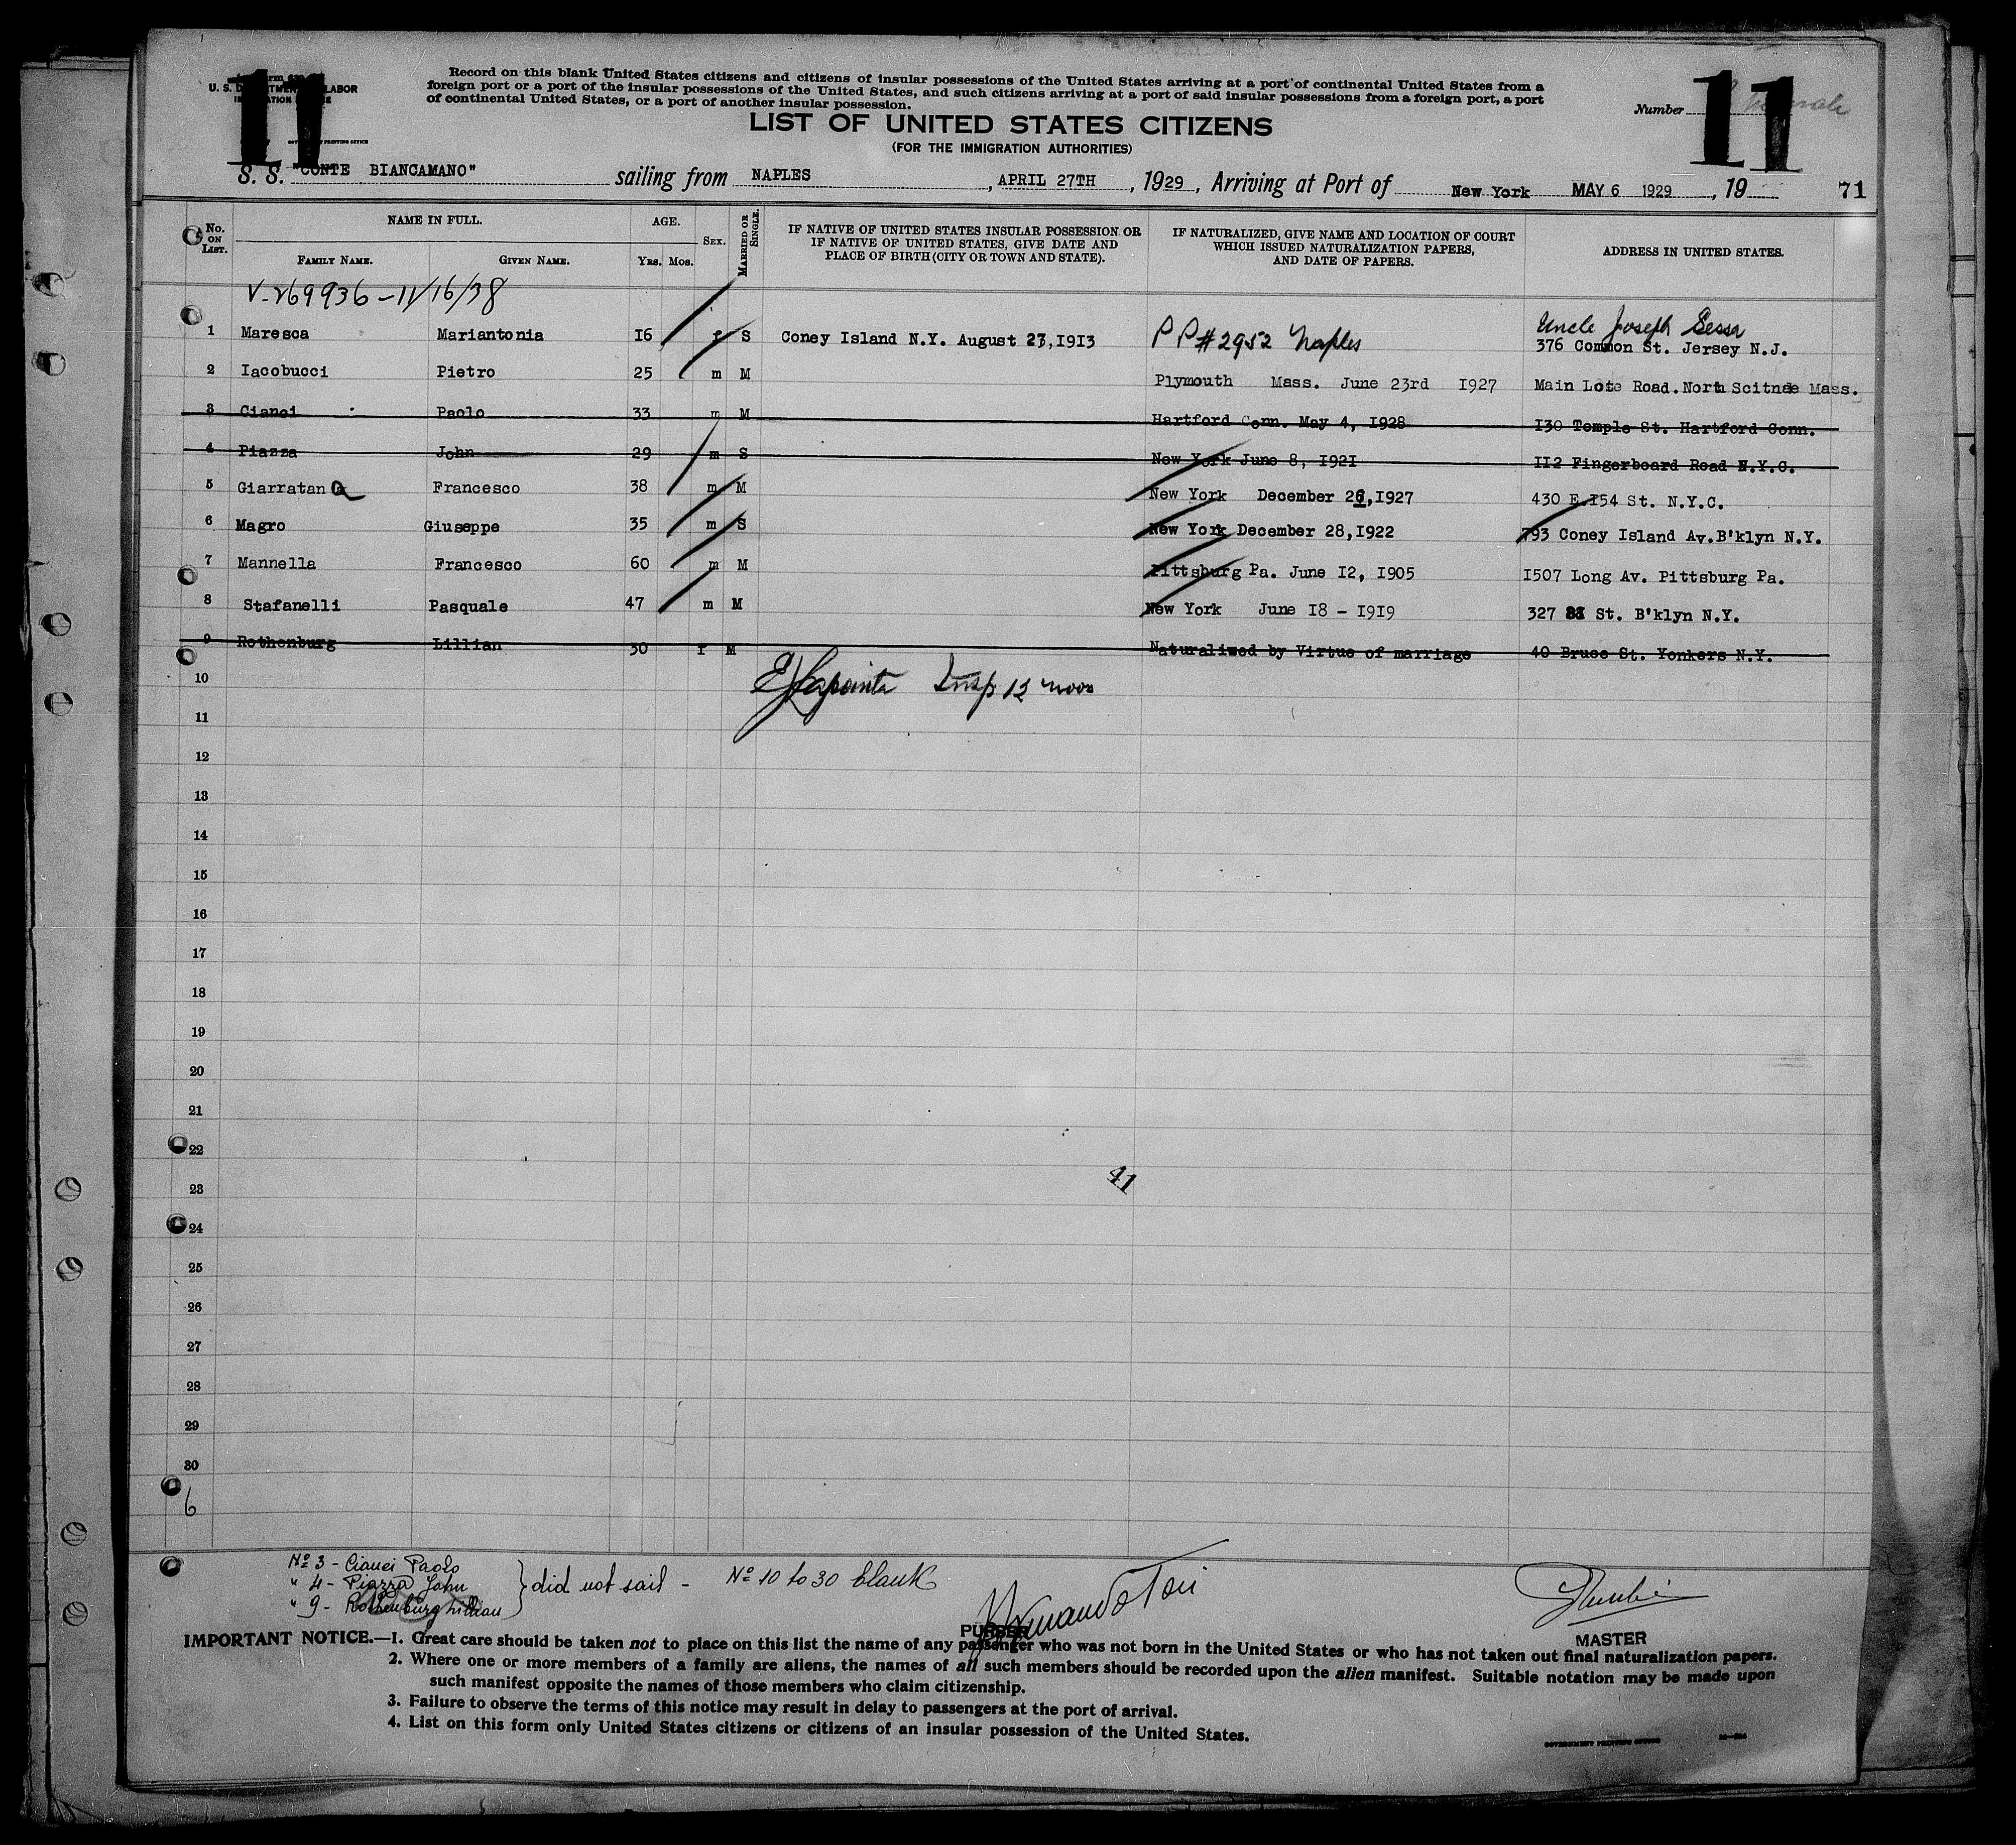 11
11
U. S. DEPARTMENT LABOR
Record on this blank United States citizens and citizens of insular possessions of the United States arriving at a port of continental United States from a
foreign port or a port of the insular possessions of the United States, and such citizens arriving at a port of said insular possessions from a foreign port, a port
of continental United States, or a port of another insular possession.
Number
LIST OF UNITED STATES CITIZENS
(FOR THE IMMIGRATION AUTHORITIES)
S. S. "CONTE BIANCAMANO" sailing from NAPLES, APRIL 27TH, 1929, Arriving at Port of New York MAY 6 1929, 19 71
No. ON LIST. NAME IN FULL. AGE. SEX. MARRIED OR SINGLE. IF NATIVE OF UNITED STATES INSULAR POSSESSION OR IF NATIVE OF UNITED STATES, GIVE DATE AND PLACE OF BIRTH (CITY OR TOWN AND STATE). IF NATURALIZED, GIVE NAME AND LOCATION OF COURT WHICH ISSUED NATURALIZATION PAPERS, AND DATE OF PAPERS. ADDRESS IN UNITED STATES.
FAMILY NAME. GIVEN NAME. YRS. MOS.
V-269936-11/16/38
Uncle Joseph Sessa
1 Maresca Mariantonia 16 f S Coney Island N.Y. August 27,1913 P P # 2952 Naples 376 Common St. Jersey N.J.
2 Iacobucci Pietro 25 m M Plymouth Mass. June 23rd 1927 Main Lote Road.North Scitnde Mass.
3 Cianci Paolo 33 m M Hartford Conn. May 4, 1928 130 Temple St. Hartford Conn.
4 Piazza John 29 m S New York June 8, 1921 112 Fingerboard Road N.Y.C.
5 Giarratana Francesco 38 m M New York December 26,1927 430 E.154 St. N.Y.C.
6 Magro Giuseppe 35 m S New York December 28,1922 793 Coney Island Av.B'klyn N.Y.
7 Mannella Francesco 60 m M Pittsburg Pa. June 12, 1905 1507 Long Av. Pittsburg Pa.
8 Stafanelli Pasquale 47 m M New York June 18 - 1919 327 St. B'klyn N.Y.
9 Rothenburg Lillian 30 f M Naturalized by Virtue of marriage 40 Bruce St. Yonkers N.Y.
10 Insp 12 noon
11
12
13
14
15
16
17
18
19
20
21
22
23 41
24
25
26
27
28
29
30
6
Nº 3 - Cianci Paolo
" 4 - Piazza John } did not sail - Nº 10 to 30 blank
" 9 - Rothenburg Lillian
PURSER
MASTER
IMPORTANT NOTICE.—1. Great care should be taken not to place on this list the name of any passenger who was not born in the United States or who has not taken out final naturalization papers.
2. Where one or more members of a family are aliens, the names of all such members should be recorded upon the alien manifest. Suitable notation may be made upon
such manifest opposite the names of those members who claim citizenship.
3. Failure to observe the terms of this notice may result in delay to passengers at the port of arrival.
4. List on this form only United States citizens or citizens of an insular possession of the United States.
GOVERNMENT PRINTING OFFICE